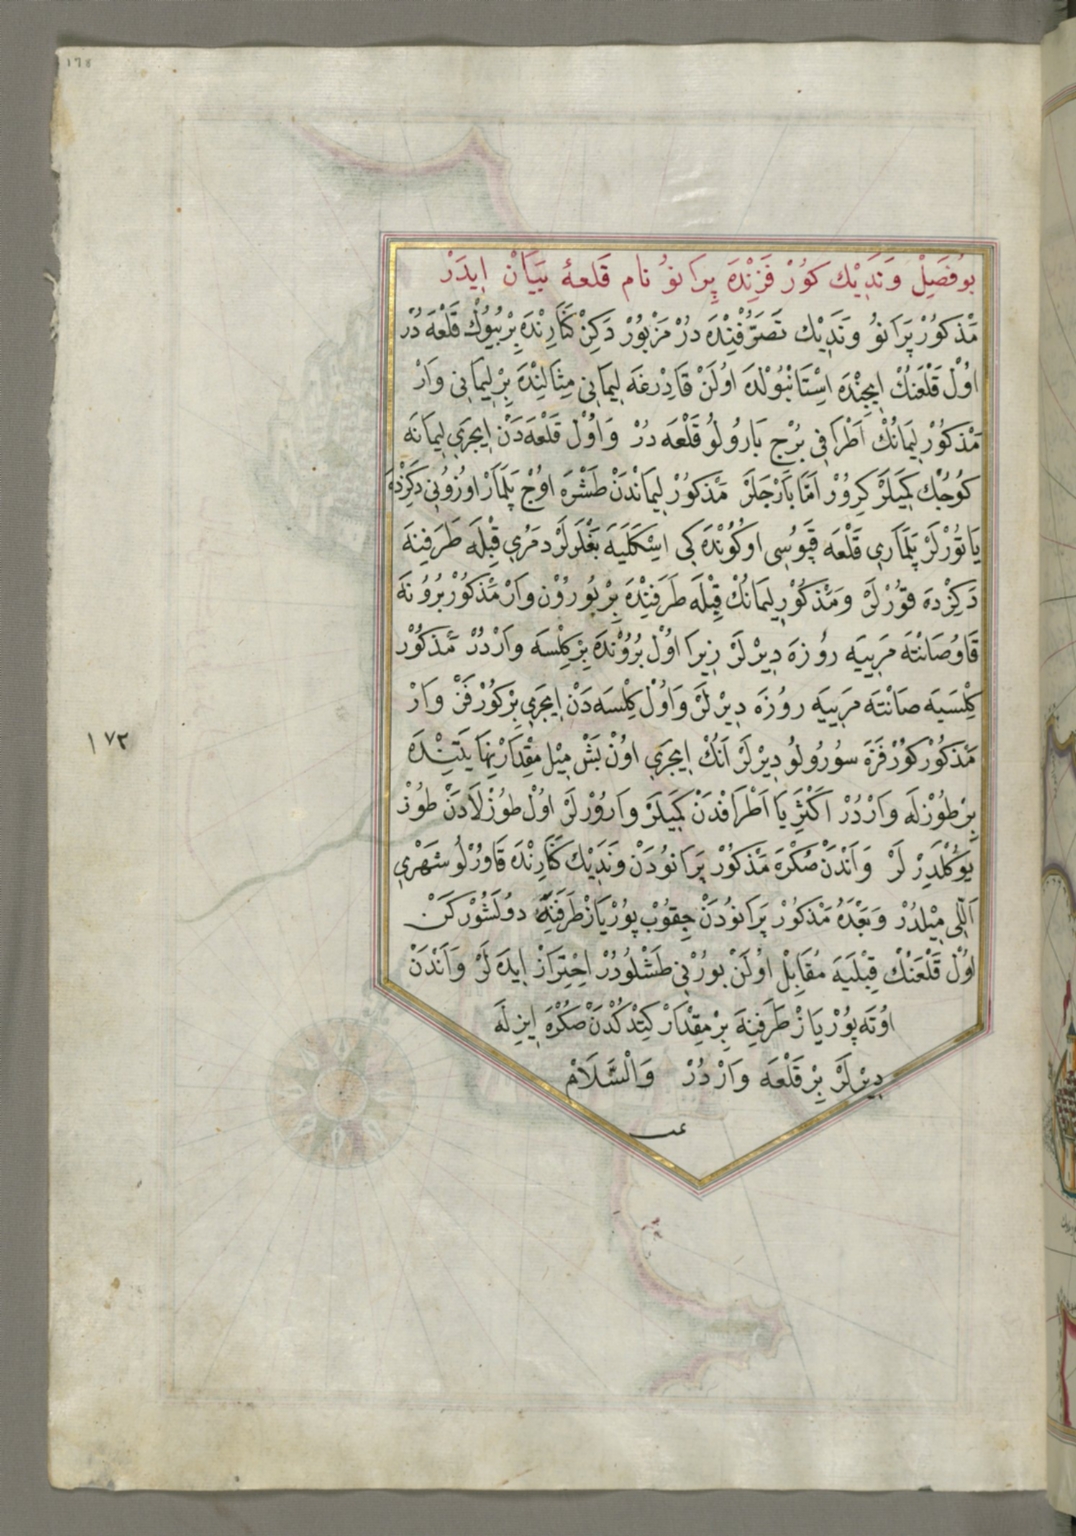 ١٦٤
بوُ فَصِلْ وَنَدِيْك كورْ فَزِنْدَه پِرَانوُ نام قَلعهٔ بَيَانْ اِيدَرْ
مَذْكُورْ پِرَانوُ وَنَدِيْك تَصَرُّفِنْدَه دُرْ مَزْبُورْ دَكِزْ كَنَارِنْدَه بِرْ بُيُوكْ قَلْعَه دُرْ
اوُلْ قَلْعَنُكْ اِيچِنْدَه اِسْتَانْبُولْدَه اوُلَنْ قَادِرْغَه لِيمَانِى مِثَالِنْدَه بِرْ لِيمَانِى وَارْ
مَذْكُورْ لِيمَانُكْ اَطْرَافِى بُرْج بَارُولُو قَلْعَه دُرْ وَاوُلْ قَلْعَه دَنْ اِيچَرِى لِيمَانَه
كُوچُكْ كَمِيلَرْ كِرُورْ اَمَّا بَارْجَلَرْ مَذْكُورْ لِيمَانْدَنْ طَشْرَه اوُچْ پَلَمَارْ اوُزُونِى دَكِزْدَه
يَاتُورْلَرْ پَلَمَارِى قَلْعَه قَپُوسِى اوُكُونْدَه كِى اِسْكَلَيَه بَغْلَرْلَرْ دَمُرِى قِبْلَه طَرَفِنَه
دَكِزْدَه قوُرْلَرْ وَمَذْكُورْ لِيمَانُكْ قِبْلَه طَرَفِنْدَه بِرْ بُورُونْ وَارْ مَذْكُورْ بُرُونَه
قَاوُصَانْتَه مَرِيَيه رُوزَه دِيرْلَرْ زِيرَا اوُلْ بُرُونْدَه بِرْ كِلْسَه وَارْدُرْ مَذْكُورْ
كِلْسَيَه صَانْتَه مَرِيَيه رُوزَه دِيرْلَرْ وَاوُلْ كِلْسَه دَنْ اِيچَرِى بِرْ كُورْفَزْ وَارْ
مَذْكُورْ كُورْفَزَه سُورُولُو دِيرْلَرْ اَنُكْ اِيچَرِى اوُنْ بَشْ مِيلْ مِقْدَارْ نِهَايَتِنْدَه
بِرْ طُوزْلَه وَارْدُرْ اَكْثَرِيَا اَطْرَافْدَنْ كَمِيلَرْ وَارُورْلَرْ اوُلْ طُوزْلَادَنْ طُوزْ
يوُكْلَدِرْلَرْ وَاَنْدَنْ صُكْرَه مَذْكُورْ پِرَانُودَنْ وَنَدِيْك كَنَارِنْدَه قَاوُرْلُو شَهْرِى
اَللِّى مِيلْدُرْ وَبَعْدَهُ مَذْكُورْ پِرَانُودَنْ چِقُوبْ پُورْيَازْ طَرَفِنَه دوُلَشُورْكَنْ
اوُلْ قَلْعَنُكْ قِبْلَيَه مُقَابِلْ اوُلَنْ بوُرُنِى طَشْلُودُرْ اِحْتِرَازْ اِيدَه لَرْ وَاَنْدَنْ
اوُتَه پُورْيَازْ طَرَفِنَه بِرْ مِقْدَارْ كِتْدُكْدَنْ صُكْرَه اِيزِلَه
دِيرْلَرْ بِرْ قَلْعَه وَارْدُرْ وَالْسَّلَامْ
تمت
١٧٢